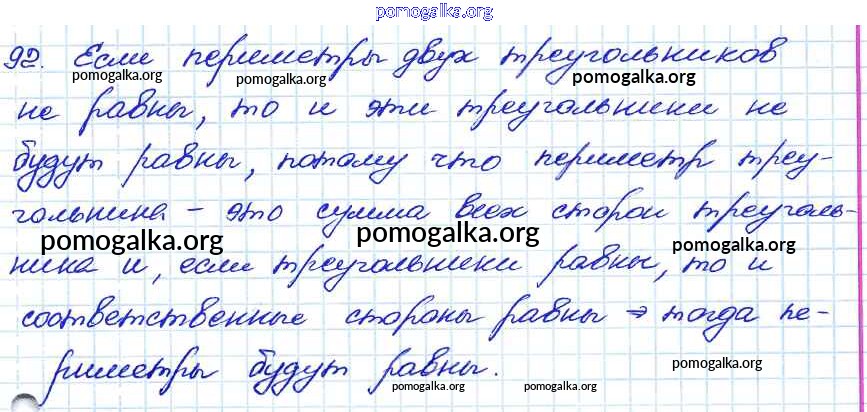 pomogalka.org
92. Если периметры двух треугольников
pomogalka.org pomogalka.org pomogalka.org
не равны, то и эти треугольники не
будут равны, потому что периметр треу-
гольника – это сумма всех сторон треуголь-
pomogalka.org pomogalka.org pomogalka.org
ника и, если треугольники равны, то и
соответственные стороны равны ⇒ тогда пе-
риметры будут равны.
pomogalka.org pomogalka.org pomogalka.org